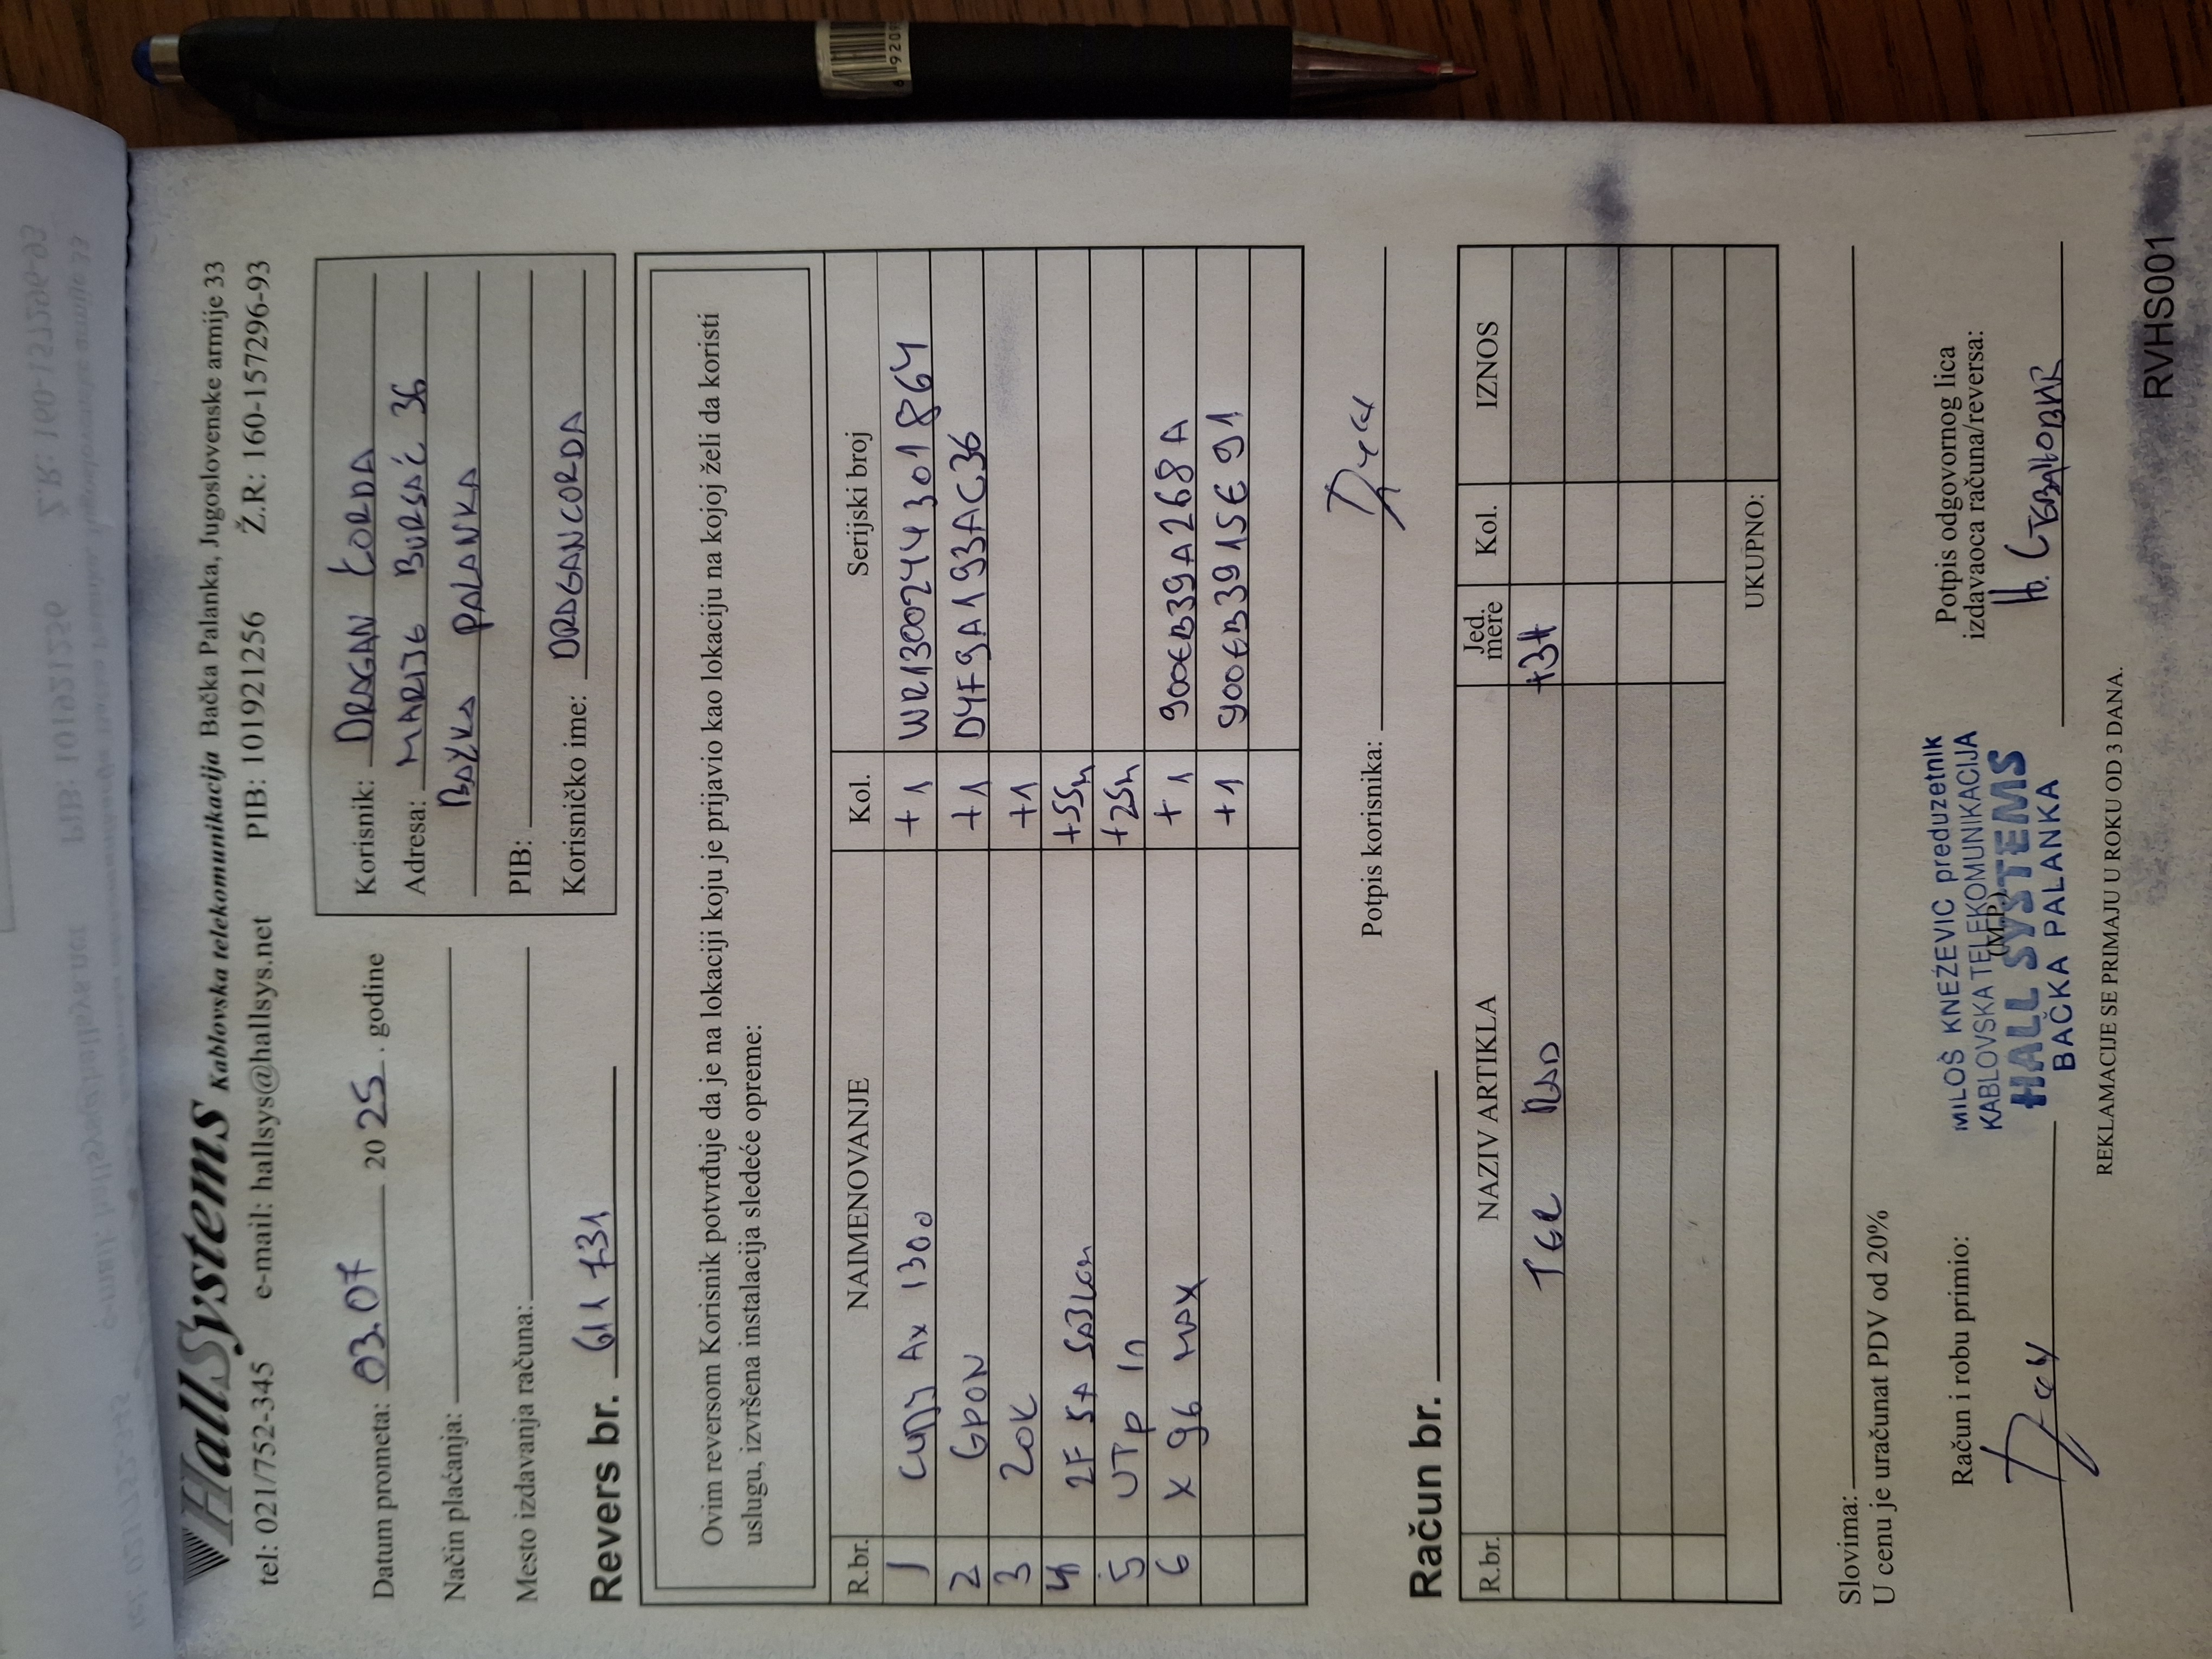 HallSystems Kablovska telekomunikacija Bačka Palanka, Jugoslovenske armije 33
tel: 021/752-345 e-mail: hallsys@hallsys.net PIB: 101921256 Ž.R: 160-157296-93
Datum prometa: 03.07 2025. godine
Način plaćanja:
Mesto izdavanja računa:
Korisnik: DRAGAN ĆORDA
Adresa: MARIJE BURSAĆ 36
BAČKA PALANKA
PIB:
Korisničko ime: DRAGANCORDA
Revers br. 611 731
Ovim reversom Korisnik potvrđuje da je na lokaciji koju je prijavio kao lokaciju na kojoj želi da koristi
uslugu, izvršena instalacija sledeće opreme:
R.br. NAIMENOVANJE Kol. Serijski broj
1 Cudy AX 1300 +1 WR1300244301864
2 GPON +1 D4F9A193AC36
3 ZOK +1
4 2F SA +55m
5 UTP In +25m
6 X 96 MAX +1 900EB39A268A
+1 900EB3915E91
Potpis korisnika:
Račun br.
R.br. NAZIV ARTIKLA Jed. mere Kol. IZNOS
TEL RAD +3H
UKUPNO:
Slovima:
U cenu je uračunat PDV od 20%
Račun i robu primio:
MILOŠ KNEŽEVIĆ preduzetnik
KABLOVSKA TELEKOMUNIKACIJA
(M.P.)
HALL SYSTEMS
BAČKA PALANKA
Potpis odgovornog lica
izdavaoca računa/reversa:
REKLAMACIJE SE PRIMAJU U ROKU OD 3 DANA.
RVHS001